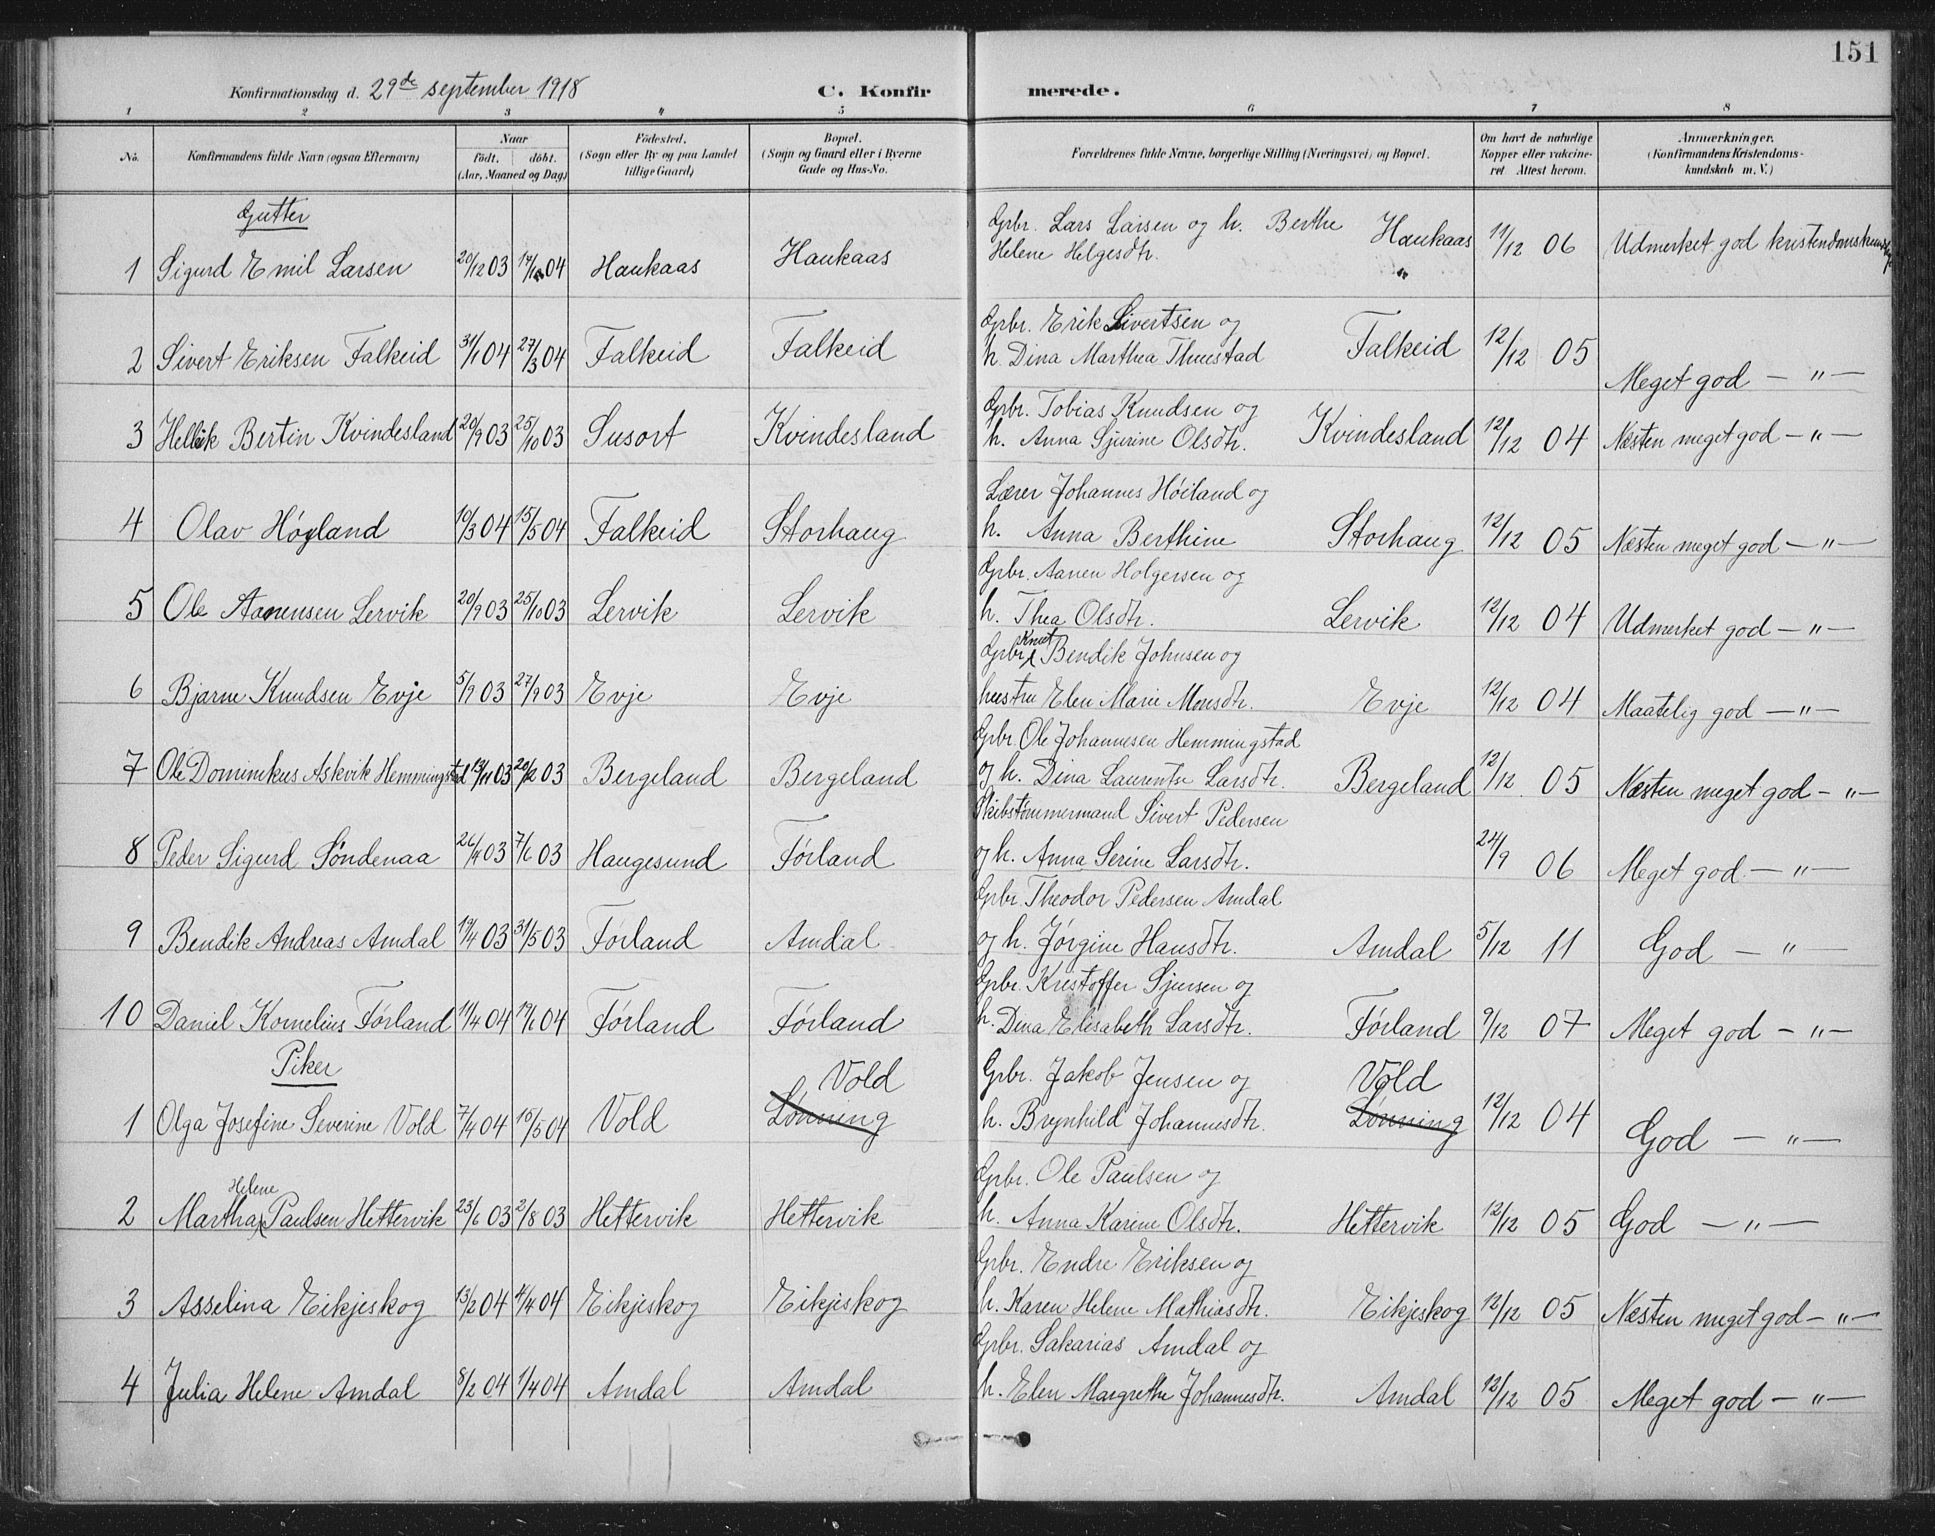 151
Konfirmationsdag d. 29de september 1918 C. Konfir merede.
1 2 3 4 5 6 7 8
No. Konfirmandens fulde Navn (ogsaa Efternavn) Naar födt. döbt. (Aar, Maaned og Dag) Födested. (Sogn eller By og paa Landet tillige Gaard) Bopæl. (Sogn og Gaard eller i Byerne Gade og Hus-No. Forældrenes fulde Navne, borgerlige Stilling (Næringsvei) og Bopæl. Om havt de naturlige Kopper eller vakcineret Attest herom. Anmærkninger. (Konfirmandens Kristendomskundskab m. V.)
Gutter
Gbr. Lars Larsen og h. Berthe Haukaas
1 Sigurd Emil Larsen 20/12 03 04 Haukaas Haukaas Helene Helgesdtr. " 11/12 06 Udmerket god
Gbr. Erik Sivertsen og
2 Sivert Eriksen Falkeid 31/1 04 27/3 04 Falkeid Falkeid h. Dina Marthea Thuestad Falkeid 12/12 05 Meget god — " —
Gbr. Tobias Knudsen og
3 Hellik Bertin Kvindesland 20/9 03 25/10 03 Susort Kvindesland h. Anna Sjurine Olsdtr. Kvindesland 12/12 04 Næsten meget god — " —
Lærer Johannes Höiland og
4 Olav Höyland 10/3 04 15/5 04 Falkeid Storhaug h. Anna Berthine Storhaug 12/12 05 Næsten meget god — " —
Gbr. Aanen Holgersen og
5 Ole Aanensen Lervik 20/9 03 25/10 03 Lervik Lervik h. Thea Olsdtr. Lervik 12/12 04 Udmerket god — " —
Gbr. Knut Bendik Johnsen og
6 Bjarne Knudsen Evje 5/9 03 27/9 03 Evje Evje hustru Elen Marie Monsdtr. Evje 12/12 04 Maatelig god — " —
Gbr. Ole Johannesen Hemmingstad
7 Ole Dominikus Askvik Hemmingstad 03 03 Bergeland Bergeland og h. Dina Laurentse Larsdtr. Bergeland 12/12 05 Næsten meget god — " —
Skibstömmermand Sivert Pedersen
8 Peder Sigurd Söndenaa 26/4 03 7/6 03 Haugesund Förland og h. Anna Serine Larsdtr. 24/9 06 Meget god — " —
Gbr. Theodor Pedersen Amdal
9 Bendik Andreas Amdal 19/4 03 31/5 03 Förland Amdal og h. Jörgine Hansdtr. Amdal 5/12 11 God — " —
Gbr. Kristoffer Sjursen og
10 Daniel Kornelius Förland 11/4 04 19/6 04 Förland Förland h. Dina Elisabeth Larsdtr. Förland 9/12 07 Meget god — " —
Piker
Vold Gbr. Jakob Jensen og Vold
1 Olga Josefine Severine Vold 7/4 04 15/5 04 Vold Lönning h. Brynhild Johannesdtr. Lönning 12/12 04 God — " —
Helene Gbr. Ole Paulsen og
2 Martha Paulsen Hettervik 23/6 03 2/8 03 Hettervik Hettervik h. Anna Karine Olsdtr. Hettervik 12/12 05 God — " —
Gbr. Endre Eriksen og
3 Asselina Eikjeskog 13/2 04 4/4 04 Eikjeskog Eikjeskog h. Karen Helene Mathiasdtr. Eikjeskog 12/12 05 Næsten meget god — " —
Gbr. Sakarias Amdal og
4 Julia Helene Amdal 8/2 04 1/4 04 Amdal Amdal h. Elen Margrethe Johannesdtr. Amdal 12/12 05 Meget god — " —